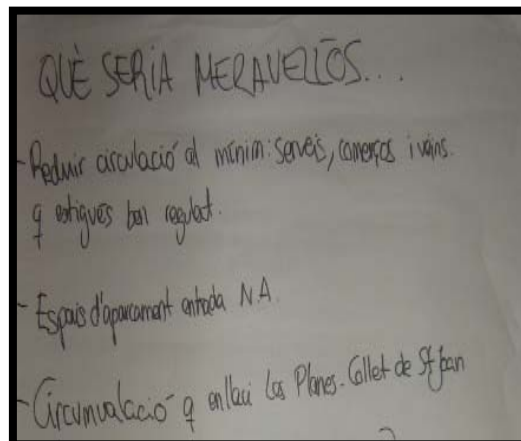 QUÈ SERIA MERAVELLÓS...
- Reduir circulació al mínim: serveis, comerços i veïns.
q estigués ben regulat.
- Espais d'aparcament entrada N.A.
- Circumvalació q enllaci Les Planes - Collet de St Joan